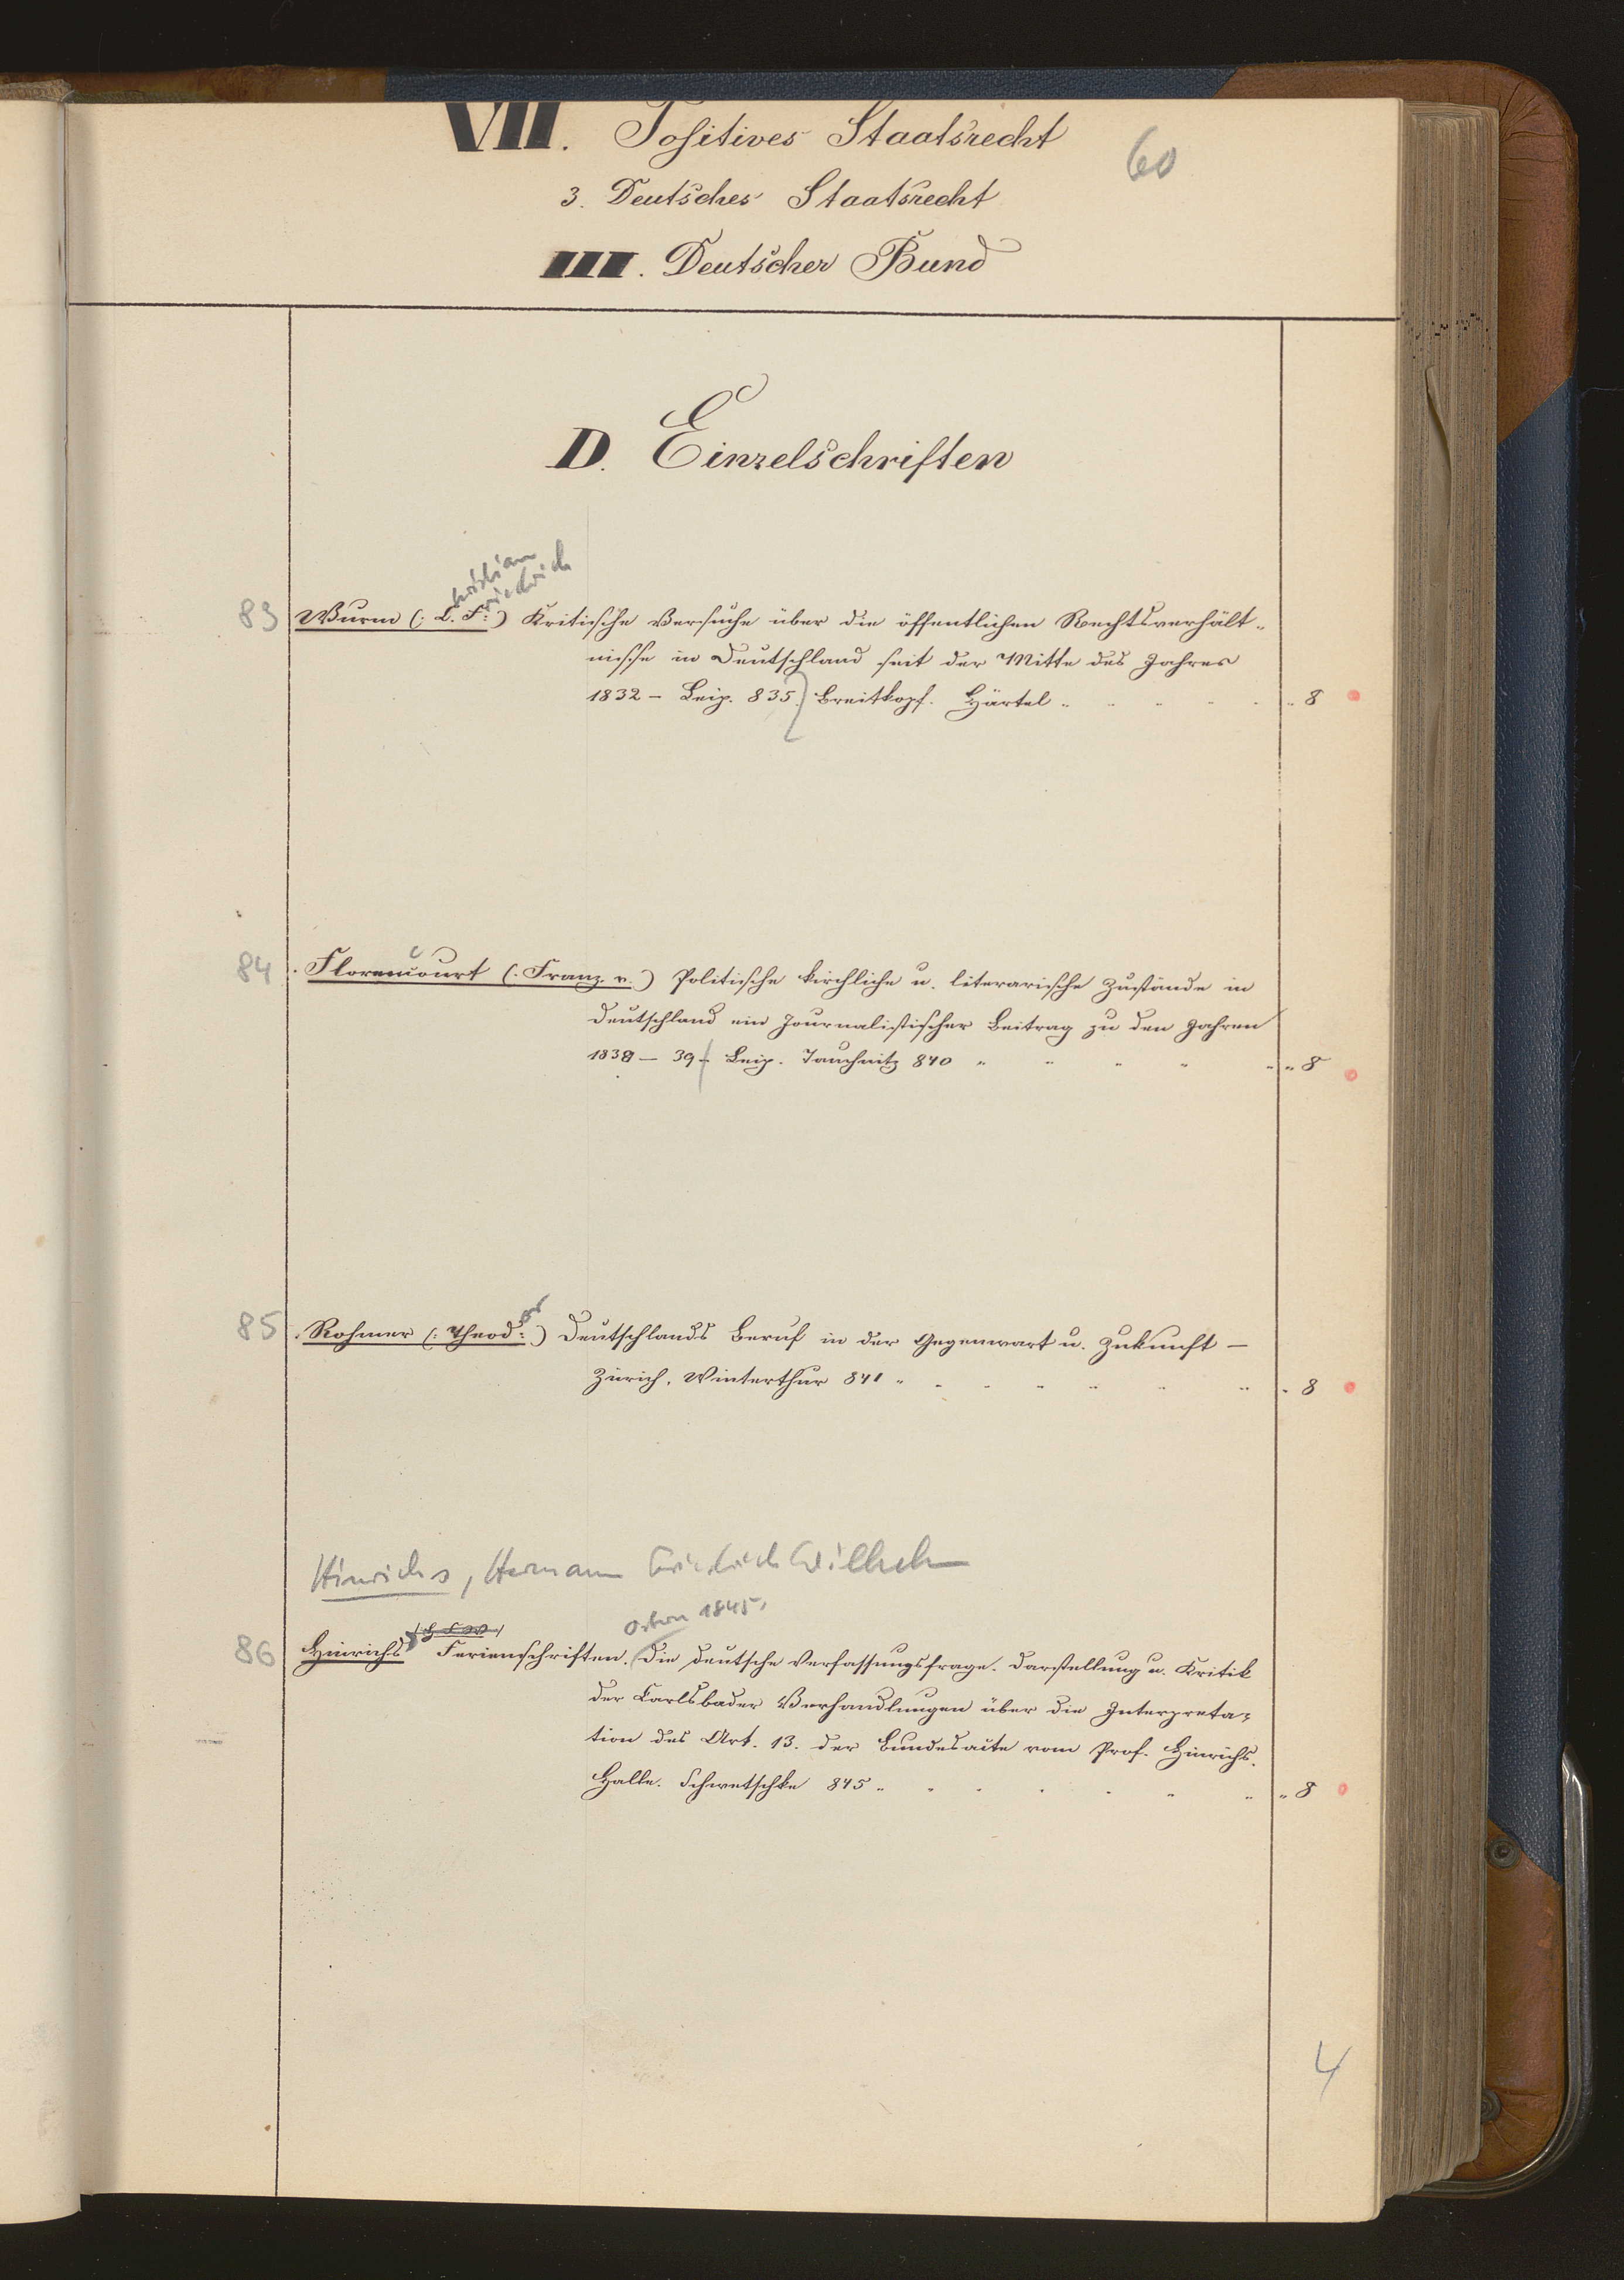 VII. Positives Staatsrecht
60
3. Deutsches Staatsrecht
III. Deutscher Bund
D. Einzelschriften
hristian
riedrich
83 Wurm (: C. F. :) Kritische Versuche über die öffentlichen Rechtsverhält-
nisse in Deutschland seit der Mitte des Jahres
1832 – Leip. 835. Breitkopf. Härtel " " " " " " 8
c
84 Florencourt (: Franz. v. :) Politische kirchliche u. literarische Zustände in
Deutschland ein Journalistischer Beitrag zu den Jahren
1838 – 39 – Leip. Tauchnitz 840 " " " " " " 8
85 Rohmer (: Theod: :) Deutschlands Beruf in der Gegenwart u. Zukunft –
Zürich, Winterthur 841 " " " " " " " " 8
Hinrichs, Hermann Friedrich Wilhelm
Ostern 1845,
(H F W)
86 Hinrichs Ferienschriften. Die deutsche Verfassungsfrage. Darstellung u. Kritik
der Carlsbader Verhandlungen über die Interpreta-
tion des Art. 13. der Bundesacte vom Prof. Hinrichs.
Halle. Schwetschke 845 " " " " " " " " 8
4